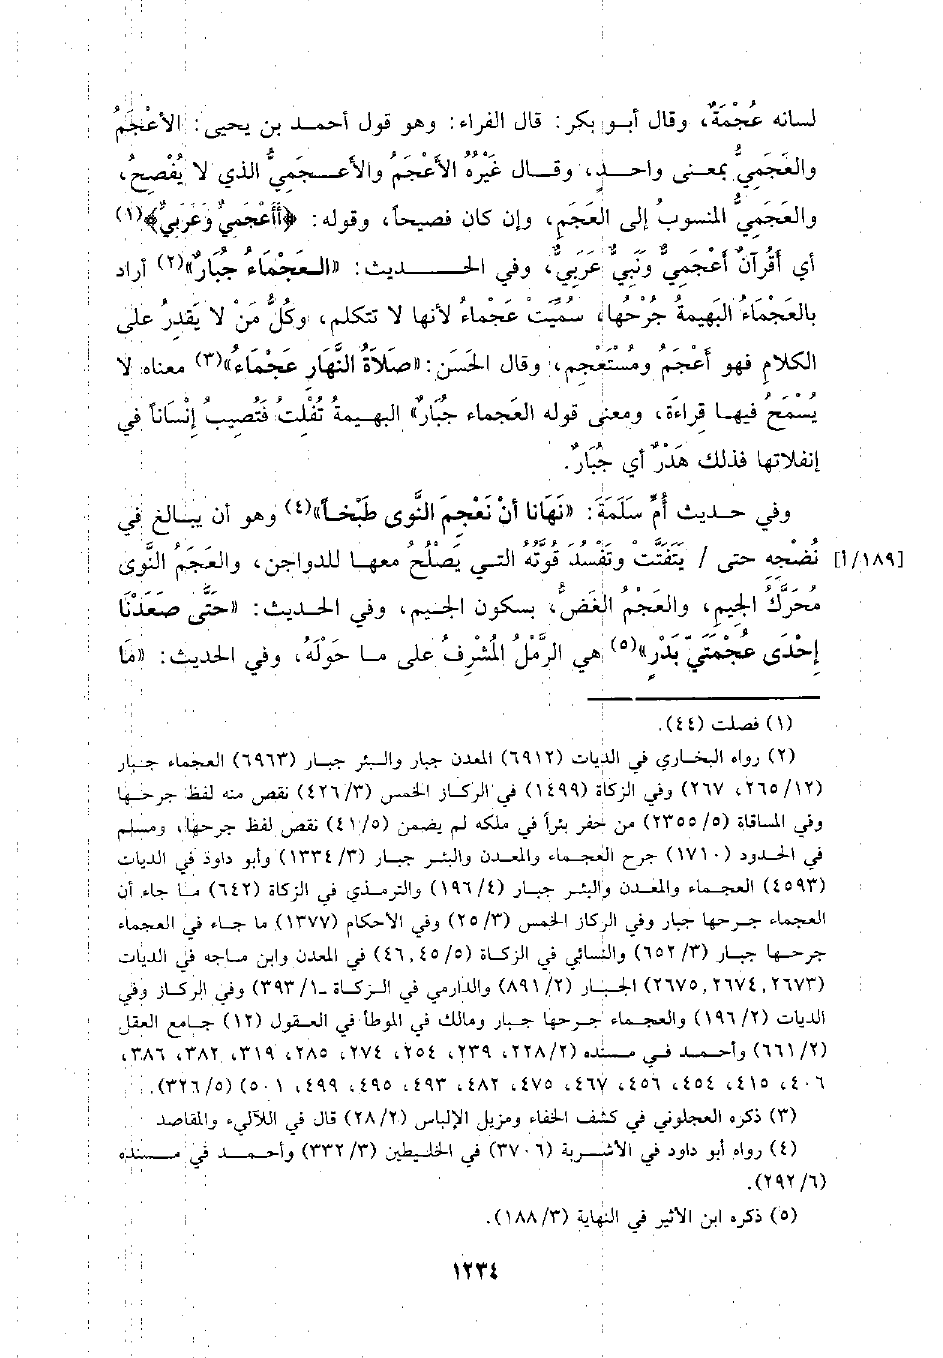 لسانه عُجْمَةٌ، وقال أبو بكر: قال الفراء: وهو قول أحمد بن يحيى: الأعْجَمُ
والعَجَميُّ بمعنى واحدٍ، وقال غَيْرُهُ الأعْجَمُ والأعجميُّ الذي لا يُفْصِحُ،
والعَجَمِيُّ المنسوبُ إلى العَجَمِ، وإن كان فصيحاً، وقوله: ﴿أَأَعْجَميٌ وَعَرَبيٌ﴾(١)
أي أَقُرآنٌ أَعْجَميٌّ ونَبيٌّ عَرَبيٌّ، وفي الحديث: «العَجْمَاءُ جُبَارٌ»(٢) أراد
بالعَجْمَاءُ البَهيمةُ جُرْحُها، سُمِّيَت عَجْماءُ لأنها لا تتكلم، وكُلُّ مَنْ لا يَقدرُ على
الكلامِ فهو أَعْجَمُ ومُسْتَعْجِم، وقال الحَسَن: «صَلاَةُ النَّهَارِ عَجْمَاءُ»(٣) معناه لا
يُسْمَحُ فيها قراءَة، ومعنى قوله العَجماء جُبَارٌ» البهيمةُ تُفْلت فَتُصيبُ إنْسَاناً في
إنفلاتها فذلك هَدْرٌ أي جُبَارٌ.
وفي حديث أُمِّ سَلَمَةَ: «نَهَانا أنْ نَعْجِمَ النَّوى طَبْخاً»(٤) وهو أن يبالغ في
[١٨٩/أ] نُضْجِه حتى / يَتَفَتَّت وتَفْسُدَ قوَّتُهُ التي يَصْلُحُ معها للدواجن، والعَجَمُ النَّوى
مُحَرَّكُ الجيم، والعَجْمُ الغَضُّ، بسكون الجيم، وفي الحديث: «حتَّى صَعَدْنَا
إحْدَى عُجْمَتَيّ بَدْرٍ»(٥) هي الرَّمْلُ المُشْرِفُ على ما حَوْلَهُ، وفي الحديث: «مَا
(١) فصلت (٤٤).
(٢) رواه البخاري في الديات (٦٩١٢) المعدن جبار والبئر جبار (٦٩٦٣) العجماء جبار
(١٢/ ٢٦٥، ٢٦٧) وفي الزكاة (١٤٩٩) في الركاز الخمس (٣/ ٤٢٦) نقص منه لفظ جرحها
وفي المساقاة (٥/ ٢٣٥٥) من حفر بئراً في ملكه لم يضمن (٥/ ٤١) نقص لفظ جرحها، ومسلم
في الحدود (١٧١٠) جرح العجماء والمعدن والبئر جبار (٣/ ١٣٣٤) وأبو داوذ في الديات
(٤٥٩٣) العجماء والمعدن والبئر جبار (٤/ ١٩٦) والترمذي في الزكاة (٦٤٢) ما جاء أن
العجماء جرحها جبار وفي الركاز الخمس (٣/ ٢٥) وفي الأحكام (١٣٧٧) ما جاء في العجماء
جرحها جبار (٣/ ٦٥٢) والنسائي في الزكاة (٥/ ٤٥, ٤٦) في المعدن وابن ماجه في الديات
(٢٦٧٣, ٢٦٧٤, ٢٦٧٥) الجبار (٢/ ٨٩١) والدارمي في الزكاة ـ١/ ٣٩٣) وفي الركاز وفي
الديات (٢/ ١٩٦) والعجماء جرحها جبار ومالك في الموطأ في العقول (١٢) جامع العقل
(٢/ ٦٦١) وأحمد في مسنده (٢/ ٢٢٨، ٢٣٩، ٢٥٤، ٢٧٤، ٢٨٥، ٣١٩، ٣٨٢، ٣٨٦،
٤٠٦، ٤١٥، ٤٥٤، ٤٥٦، ٤٦٧، ٤٧٥، ٤٨٢، ٤٩٣، ٤٩٥، ٤٩٩، ٥٠١) (٥/ ٣٢٦).
(٣) ذكره العجلوني في كشف الخفاء ومزيل الإلباس (٢/ ٢٨) قال في اللآليء والمقاصد
(٤) رواه أبو داود في الأشربة (٣٧٠٦) في الخليطين (٣/ ٣٣٢) وأحمد في مسنده
(٦/ ٢٩٢).
(٥) ذكره ابن الأثير في النهاية (٣/ ١٨٨).
١٢٣٤